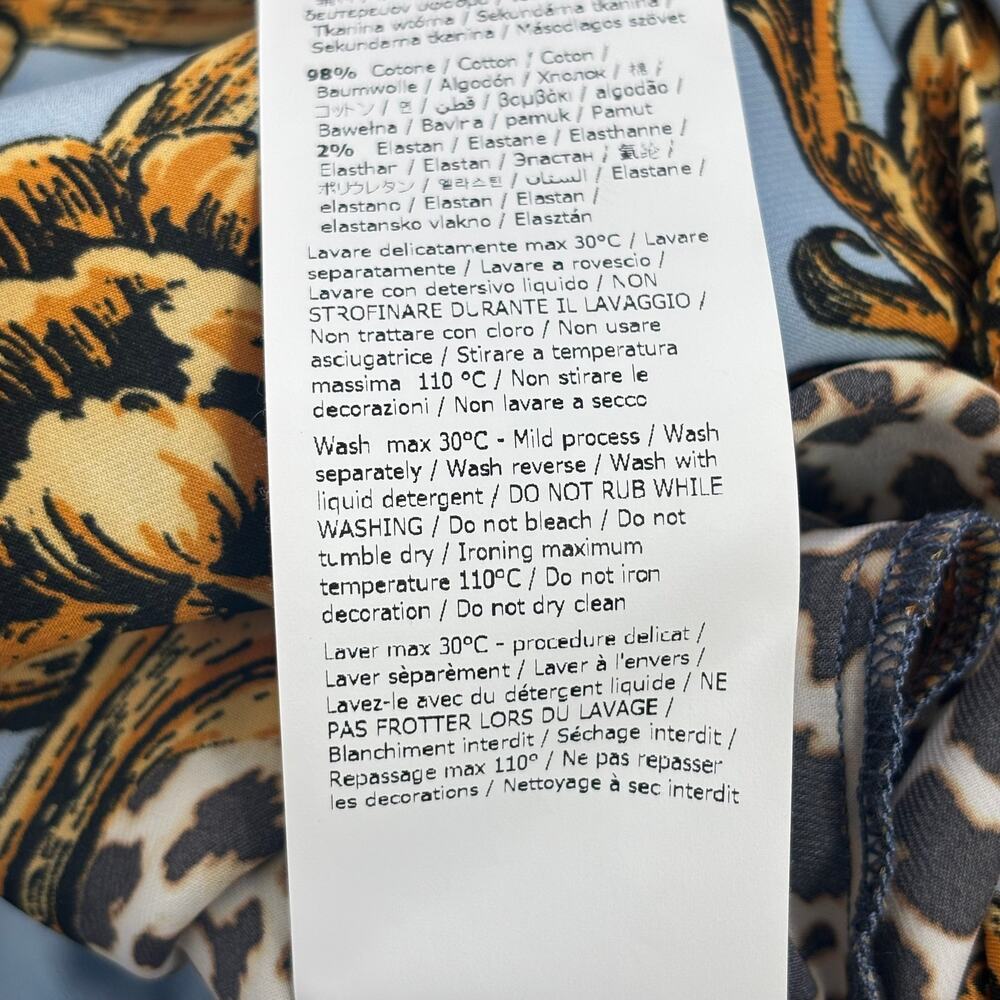 δευτερεύον ύφασμα /
Tkanina wtórna / Sekundárna tkanina /
Sekundarna tkanina / Másodlagos szövet
98% Cotone / Cotton / Coton /
Baumwolle / Algodón / Хлопок / 棉 /
コットン / 면 / قطن / βαμβάκι / algodão /
Bawełna / Bavlna / pamuk / Pamut
2% Elastan / Elastane / Elasthanne /
Elasthan / Elastan / Эластан / 氨纶 /
ポリウレタン / 엘라스틴 / الستان / Elastane /
elastano / Elastan / Elastan /
elastansko vlakno / Elasztán
Lavare delicatamente max 30°C / Lavare
separatamente / Lavare a rovescio /
Lavare con detersivo liquido / NON
STROFINARE DURANTE IL LAVAGGIO /
Non trattare con cloro / Non usare
asciugatrice / Stirare a temperatura
massima 110 °C / Non stirare le
decorazioni / Non lavare a secco
Wash max 30°C - Mild process / Wash
separately / Wash reverse / Wash with
liquid detergent / DO NOT RUB WHILE
WASHING / Do not bleach / Do not
tumble dry / Ironing maximum
temperature 110°C / Do not iron
decoration / Do not dry clean
Laver max 30°C - procedure delicat /
Laver sèparèment / Laver à l'envers /
Lavez-le avec du détergent liquide / NE
PAS FROTTER LORS DU LAVAGE /
Blanchiment interdit / Séchage interdit /
Repassage max 110° / Ne pas repasser
les decorations / Nettoyage à sec interdit